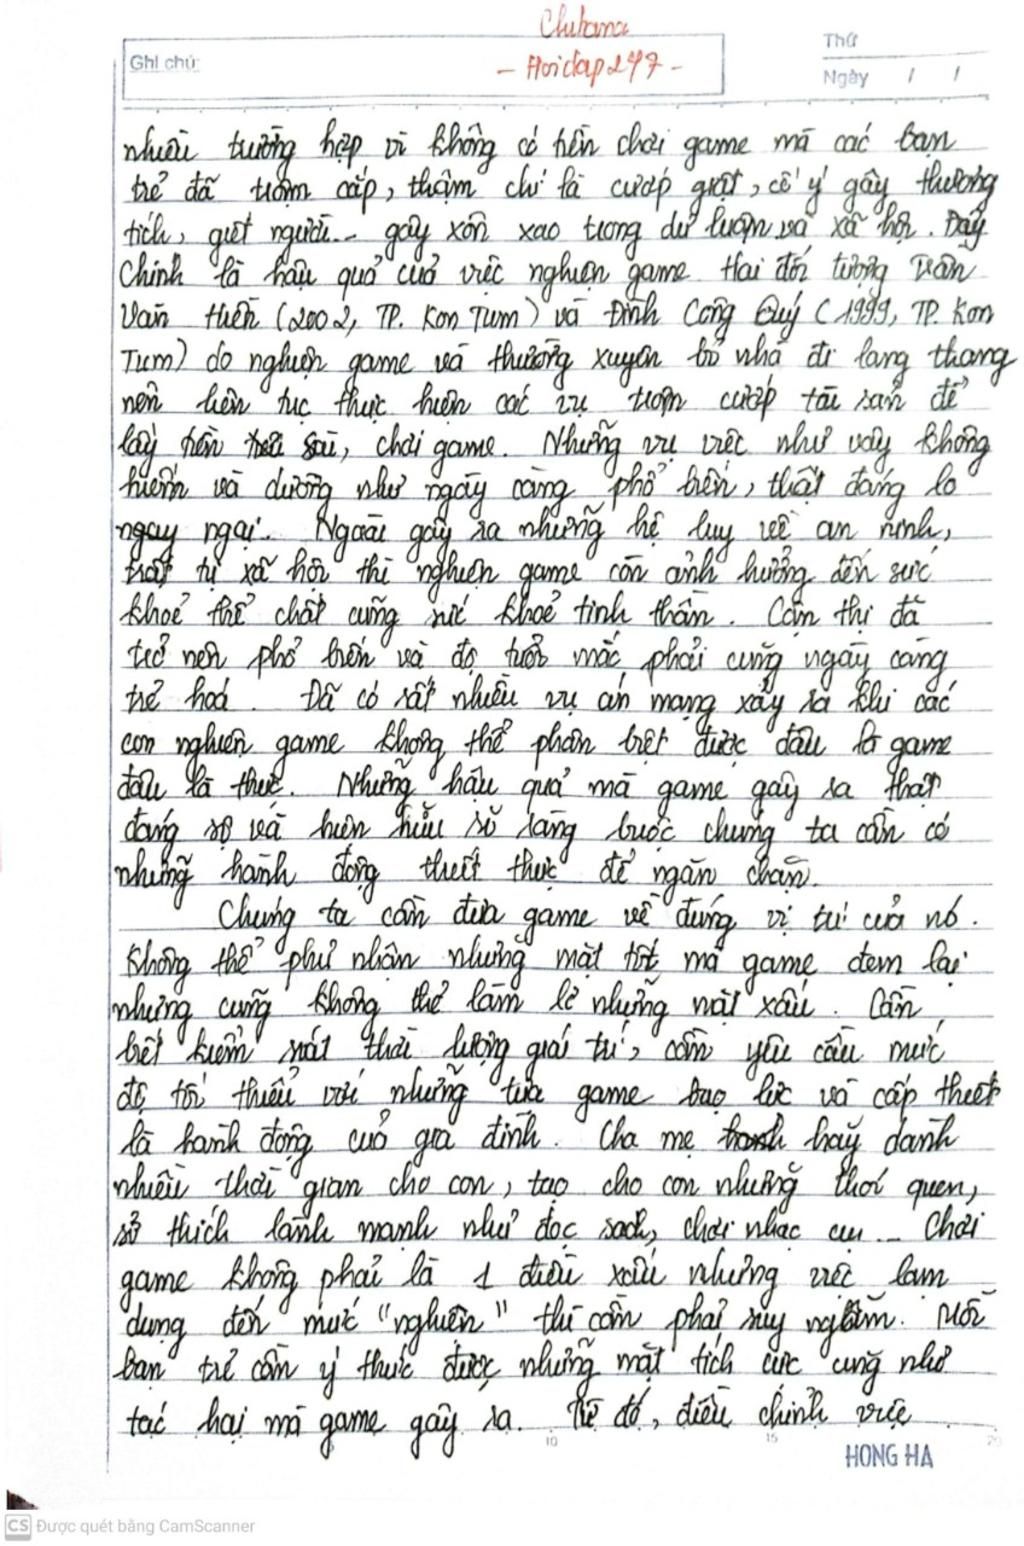 Chubana
- Hoidap247 -
Ghi chú:
Thứ
Ngày / /
nhiều trường hợp vì không có tiền chơi game mà các bạn
trẻ đã trộm cắp, thậm chí là cướp giật, cố ý gây thương
tích, giết người... gây xôn xao trong dư luận và xã hội. Đây
chính là hậu quả của việc nghiện game. Hai đối tượng Trần
Văn Hiền (2002, TP. Kon Tum) và Đinh Công Quý (1999, TP. Kon
Tum) do nghiện game và thường xuyên bỏ nhà đi lang thang
nên liên tục thực hiện các vụ trộm cướp tài sản để
lấy tiền tiêu sài, chơi game. Những vụ việc như vậy không
hiếm và dường như ngày càng phổ biến, thật đáng lo
ngay ngại. Ngoài gây ra những hệ lụy về an ninh,
trật tự xã hội thì nghiện game còn ảnh hưởng đến sức
khoẻ thể chất cũng sức khoẻ tinh thần. Cận thị đã
trở nên phổ biến và độ tuổi mắc phải cũng ngày càng
trẻ hoá. Đã có rất nhiều vụ án mạng xảy ra khi các
con nghiện game không thể phân biệt được đâu là game
đâu là thực. Những hậu quả mà game gây ra thật
đáng sợ và hiện hữu rõ ràng buộc chúng ta cần có
những hành động thiết thực để ngăn chặn.
Chúng ta cần đưa game về đúng vị trí của nó.
Không thể phủ nhận những mặt tốt mà game đem lại
nhưng cũng không thể làm lơ những mặt xấu. Cần
biết kiểm soát thời lượng giải trí, cần yêu cầu mức
độ tối thiểu với những tựa game bạo lực và cấp thiết
là hành động của gia đình. Cha mẹ hãy dành
nhiều thời gian cho con, tạo cho con những thói quen,
sở thích lành mạnh như đọc sách, chơi nhạc cụ... Chơi
game không phải là 1 điều xấu nhưng việc lạm
dụng đến mức "nghiện" thì cần phải suy ngẫm. Mỗi
bạn trẻ cần ý thức được những mặt tích cực cũng như
tác hại mà game gây ra. Từ đó, điều chỉnh việc
10 15 20
HONG HA
CS Được quét bằng CamScanner